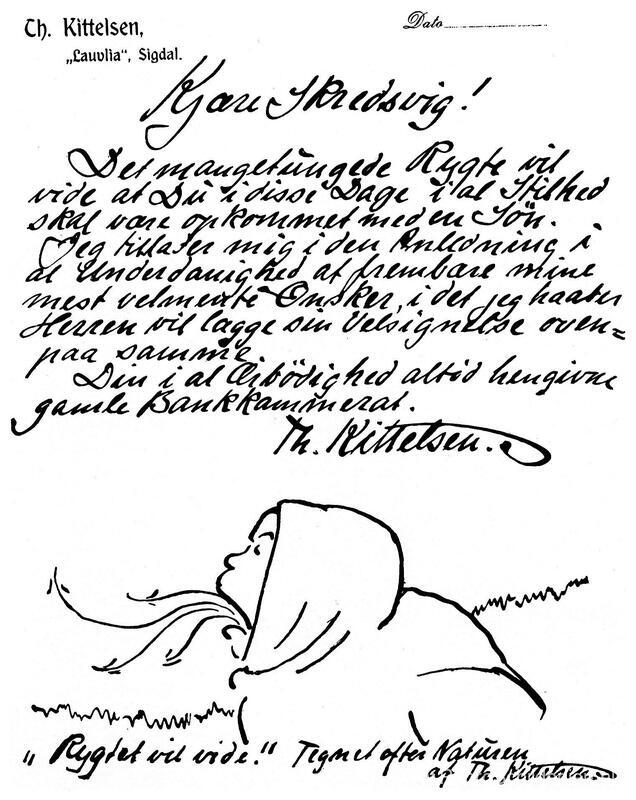 Th. Kittelsen,
„Lauvlia“, Sigdal.
Dato
Kjære Skredsvig!
Det mangetungede Rygte vil
vide at Du i disse Dage i al Stilhed
skal være opkommet med en Sön.
Jeg tillader mig i den Anledning i
al Underdanighed at frembære mine
mest velmente Ønsker, i det jeg haaber
Herren vil lægge sin Velsignelse oven=
paa samme
Din i al Ærbödighed altid hengivne
gamle Bankkammerat.
Th. Kittelsen.
„Rygtet vil vide!“ Tegnet efter Naturen
af Th. Kittelsen.